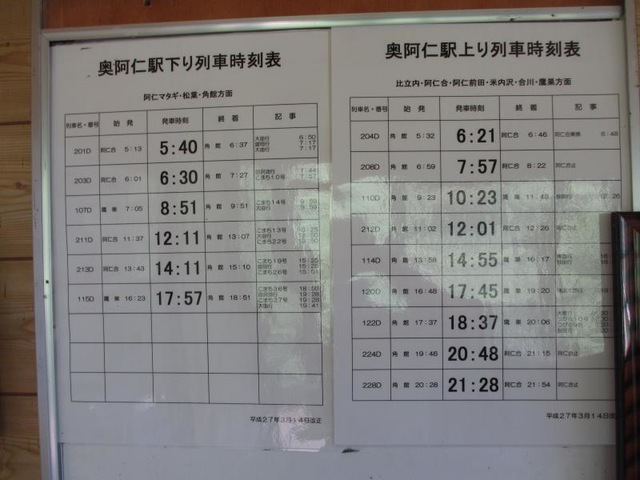 奥阿仁駅下り列車時刻表
阿仁マタギ・松葉・角館方面
列車名・番号 始発 発車時刻 終着 記事
201D 阿仁合 5:13 5:40 角館 6:37
203D 阿仁合 6:01 6:30 角館 7:27
107D 鷹巣 7:05 8:51 角館 9:51
211D 阿仁合 11:37 12:11 角館 13:07
213D 阿仁合 13:43 14:11 角館 15:10
115D 鷹巣 16:23 17:57 角館 18:51
平成27年3月14日改正
奥阿仁駅上り列車時刻表
比立内・阿仁合・阿仁前田・米内沢・合川・鷹巣方面
列車名・番号 始発 発車時刻 終着 記事
204D 角館 5:32 6:21 阿仁合 6:46
208D 角館 6:59 7:57 阿仁合 8:22 阿仁合止
110D 角館 9:23 10:23 鷹巣
212D 角館 11:02 12:01 阿仁合 12:26 阿仁合止
114D 角館 13:58 14:55 鷹巣 16:17
120D 角館 16:48 17:45 鷹巣 19:20
122D 角館 17:37 18:37 鷹巣 20:06
224D 角館 19:46 20:48 阿仁合 21:15 阿仁合止
228D 角館 20:28 21:28 阿仁合 21:54 阿仁合止
平成27年3月14日改